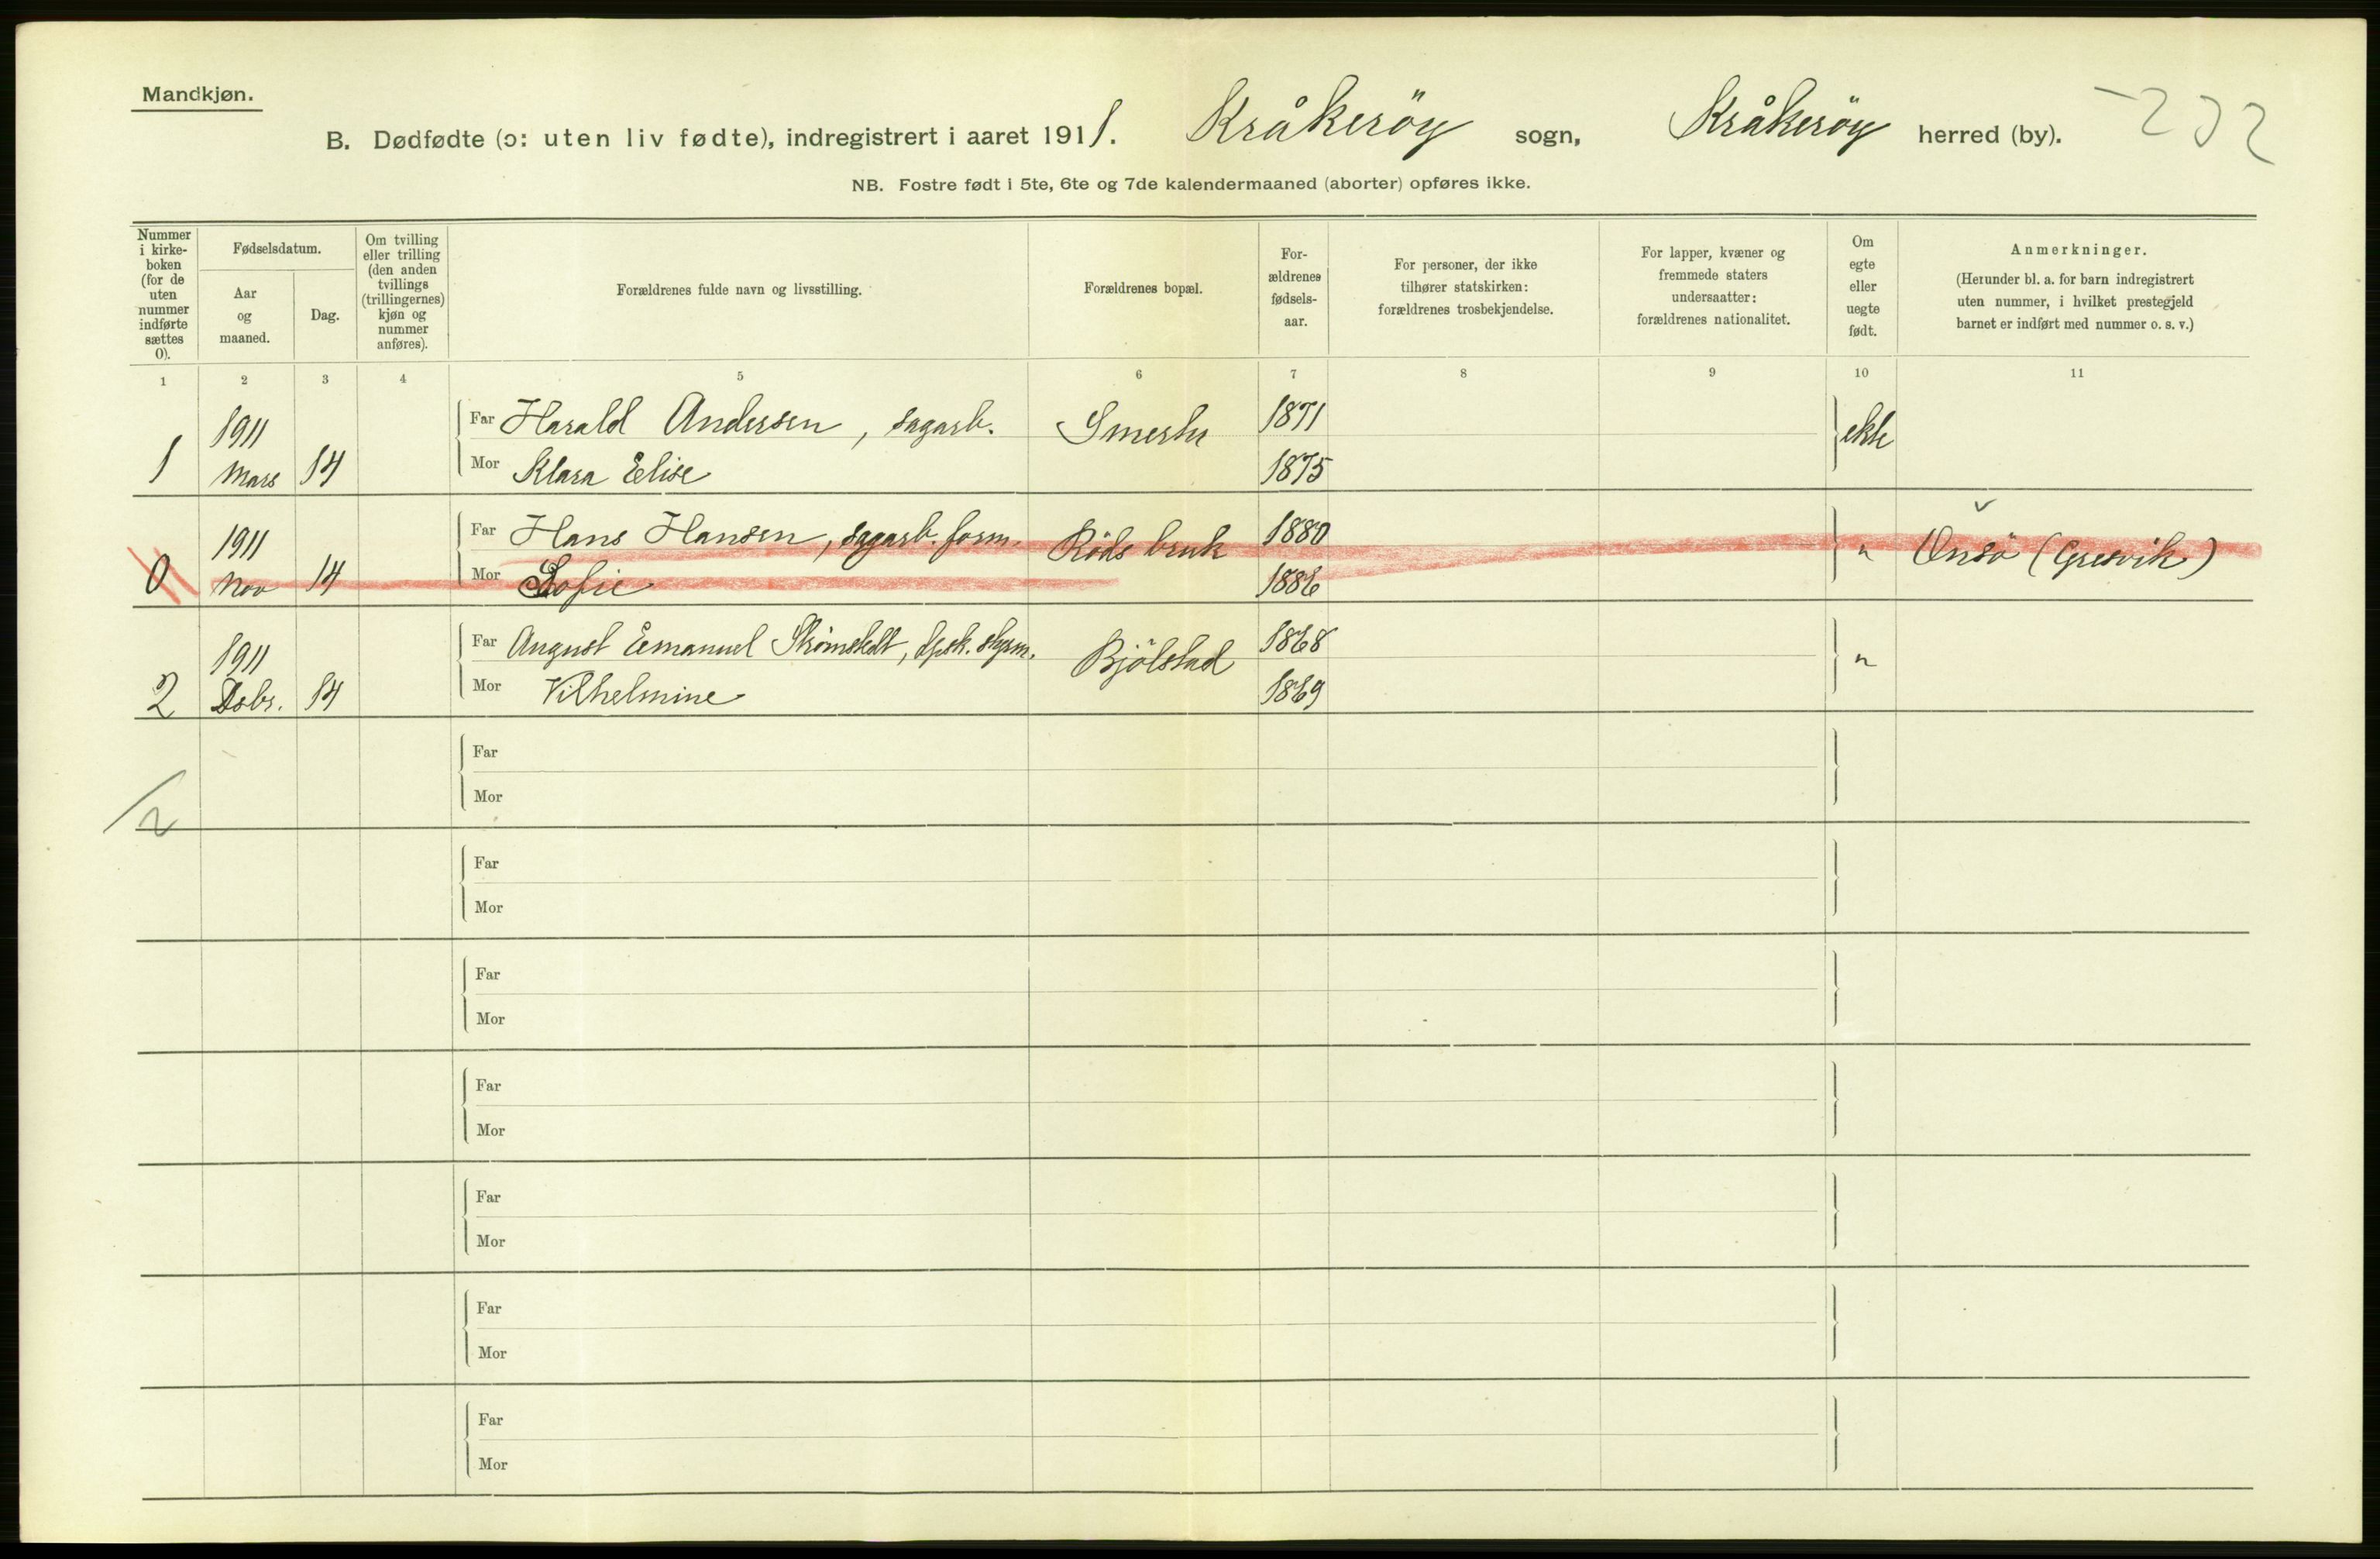 Mandkjøn.
B. Dødfødte (ɔ: uten liv fødte), indregistrert i aaret 1911. Kråkeröy sogn, Kråkeröy herred (by). 232
NB. Fostre født i 5te, 6te og 7de kalendermaaned (aborter) opføres ikke.
Nummer
i kirke-
boken
(for de
uten
nummer
indførte
sættes
0).
Fødselsdatum.
Aar
og
maaned.
Dag.
Om tvilling
eller trilling
(den anden
tvillings
(trillingernes)
kjøn og
nummer
anføres).
Forældrenes fulde navn og livsstilling.
Forældrenes bopæl.
For-
ældrenes
fødsels-
aar.
For personer, der ikke
tilhører statskirken:
forældrenes trosbekjendelse.
For lapper, kvæner og
fremmede staters
undersaatter:
forældrenes nationalitet.
Om
egte
eller
uegte
født.
Anmerkninger.
(Herunder bl. a. for barn indregistrert
uten nummer, i hvilket prestegjeld
barnet er indført med nummer o. s. v.)
1 2 3 4 5 6 7 8 9 10 11
1911 Far Harald Andersen, sagarb. 1871 ekte
1 Mars 14 Mor Klara Elise 1875
1911 Far Hans Hansen, sagarb. form. Röds bruk 1880 " Onsö (Gresvik)
0 Nov 14 Mor Sofie 1886
1911 Far August Emanuel Strömstedt, Bjölstad 1868 "
2 Dsbr. 14 Mor Vilhelmine 1869
Far
Mor
2
Far
Mor
Far
Mor
Far
Mor
Far
Mor
Far
Mor
Far
Mor